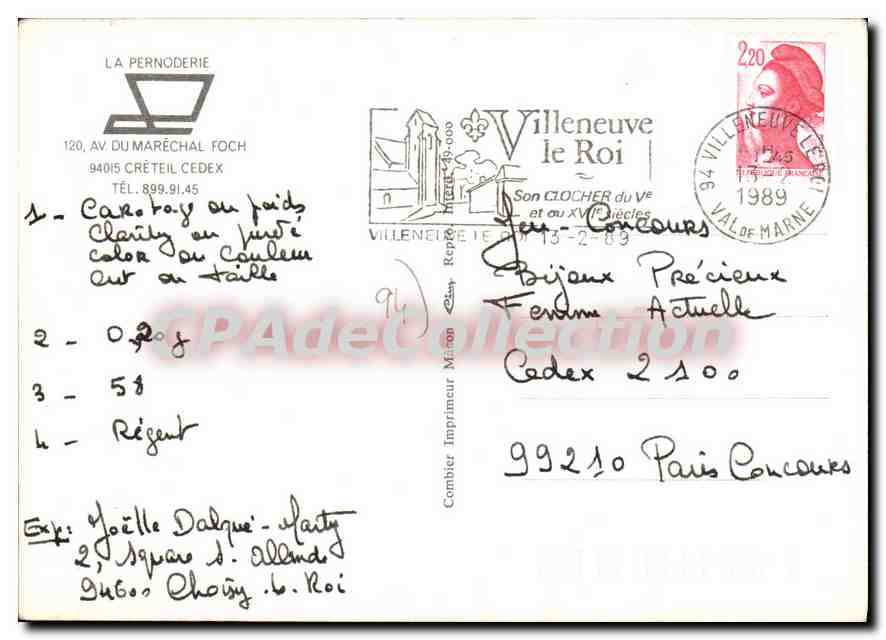 LA PERNODERIE
120, AV. DU MARÉCHAL FOCH
94015 CRÉTEIL CEDEX
TÉL. 899.91.45
1 - Caratage ou poids
Clarity ou pureté
color ou couleur
cut ou taille
2 - 0,20 g
3 - 58
4 - Régent
Exp: Joëlle Dalqué-Marty
2, square S. Allende
94600 Choisy-le-Roi
94)
Combier Imprimeur Mâcon Cim Repro. Interd. 49-000
Villeneuve
le Roi
Son CLOCHER du Ve
et au XVIe siècles
VILLENEUVE LE ROI 13-2-89
94 VILLENEUVE LE ROI
1245
13-2
1989
VAL de MARNE
2,20
REPUBLIQUE FRANÇAISE
Jeu-Concours
Bijoux Précieux
Femme Actuelle
Cedex 2100
99210 Paris Concours
CPAdeCollection